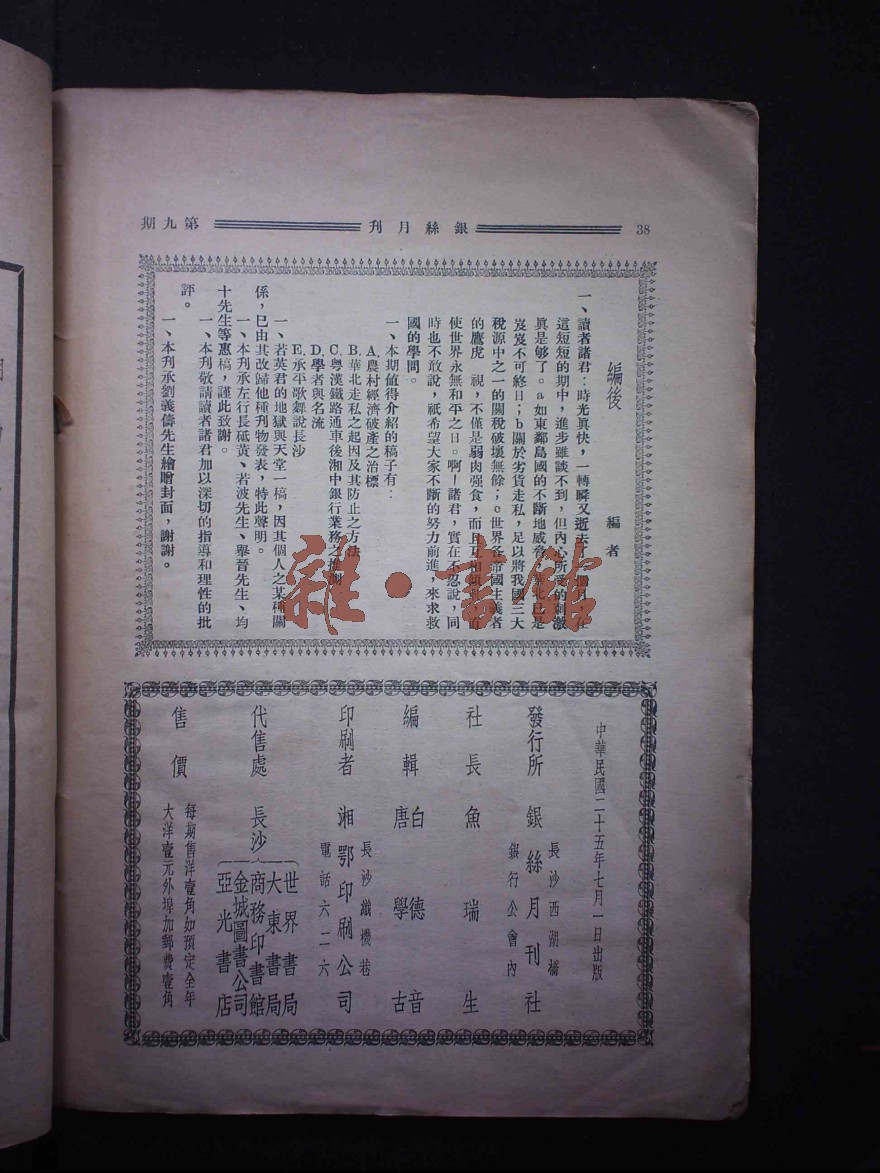 第九期
銀絲月刊
38
編後
編者
一、讀者諸君：時光眞快，一轉瞬又逝去一個月，在
這短短的期中，進步雖談不到，但內心所受的刺激
眞是够了。a如東鄰島國的不斷地威脅，華北已是
岌岌不可終日；b關於劣貨走私，足以將我國三大
稅源中之一的關稅破壞無餘；c世界各帝國主義者
的鷹虎　視，不僅是弱肉强食，而且互相
使世界永無和平之日。啊！諸君，實在不忍說，同
時也不敢說，祇希望大家不斷的努力前進，來求救
國的學問。
一、本期値得介紹的稿子有：
A.農村經濟破產之治標
B.華北走私之起因及其防止之方法
C.粵漢鐵路通車後湘中銀行業務之推測
D.學者與名流
E.承平歌舞說長沙
一、若英君的地獄與天堂一稿，因其個人之某種關
係，已由其改歸他種刊物發表，特此聲明。
一、本刊承左行長砥黃、若波先生、舉晉先生、均
十先生等惠稿，謹此致謝。
一、本刊敬請讀者諸君加以深切的指導和理性的批
評。
一、本刊承劉義儔先生繪贈封面，謝謝。
中華民國二十五年七月一日出版
發行所　銀絲月刊社
長沙西湖橋
銀行公會內
社長　魚瑞生
編輯　白德音
唐學古
印刷者　湘鄂印刷公司
長沙織機巷
電話六二六
代售處　長沙
世界書局
大東書局
商務印書館
金城圖書公司
亞光書店
售價
每期售洋壹角如預定全年
大洋壹元外埠加郵費壹角
雜·書館